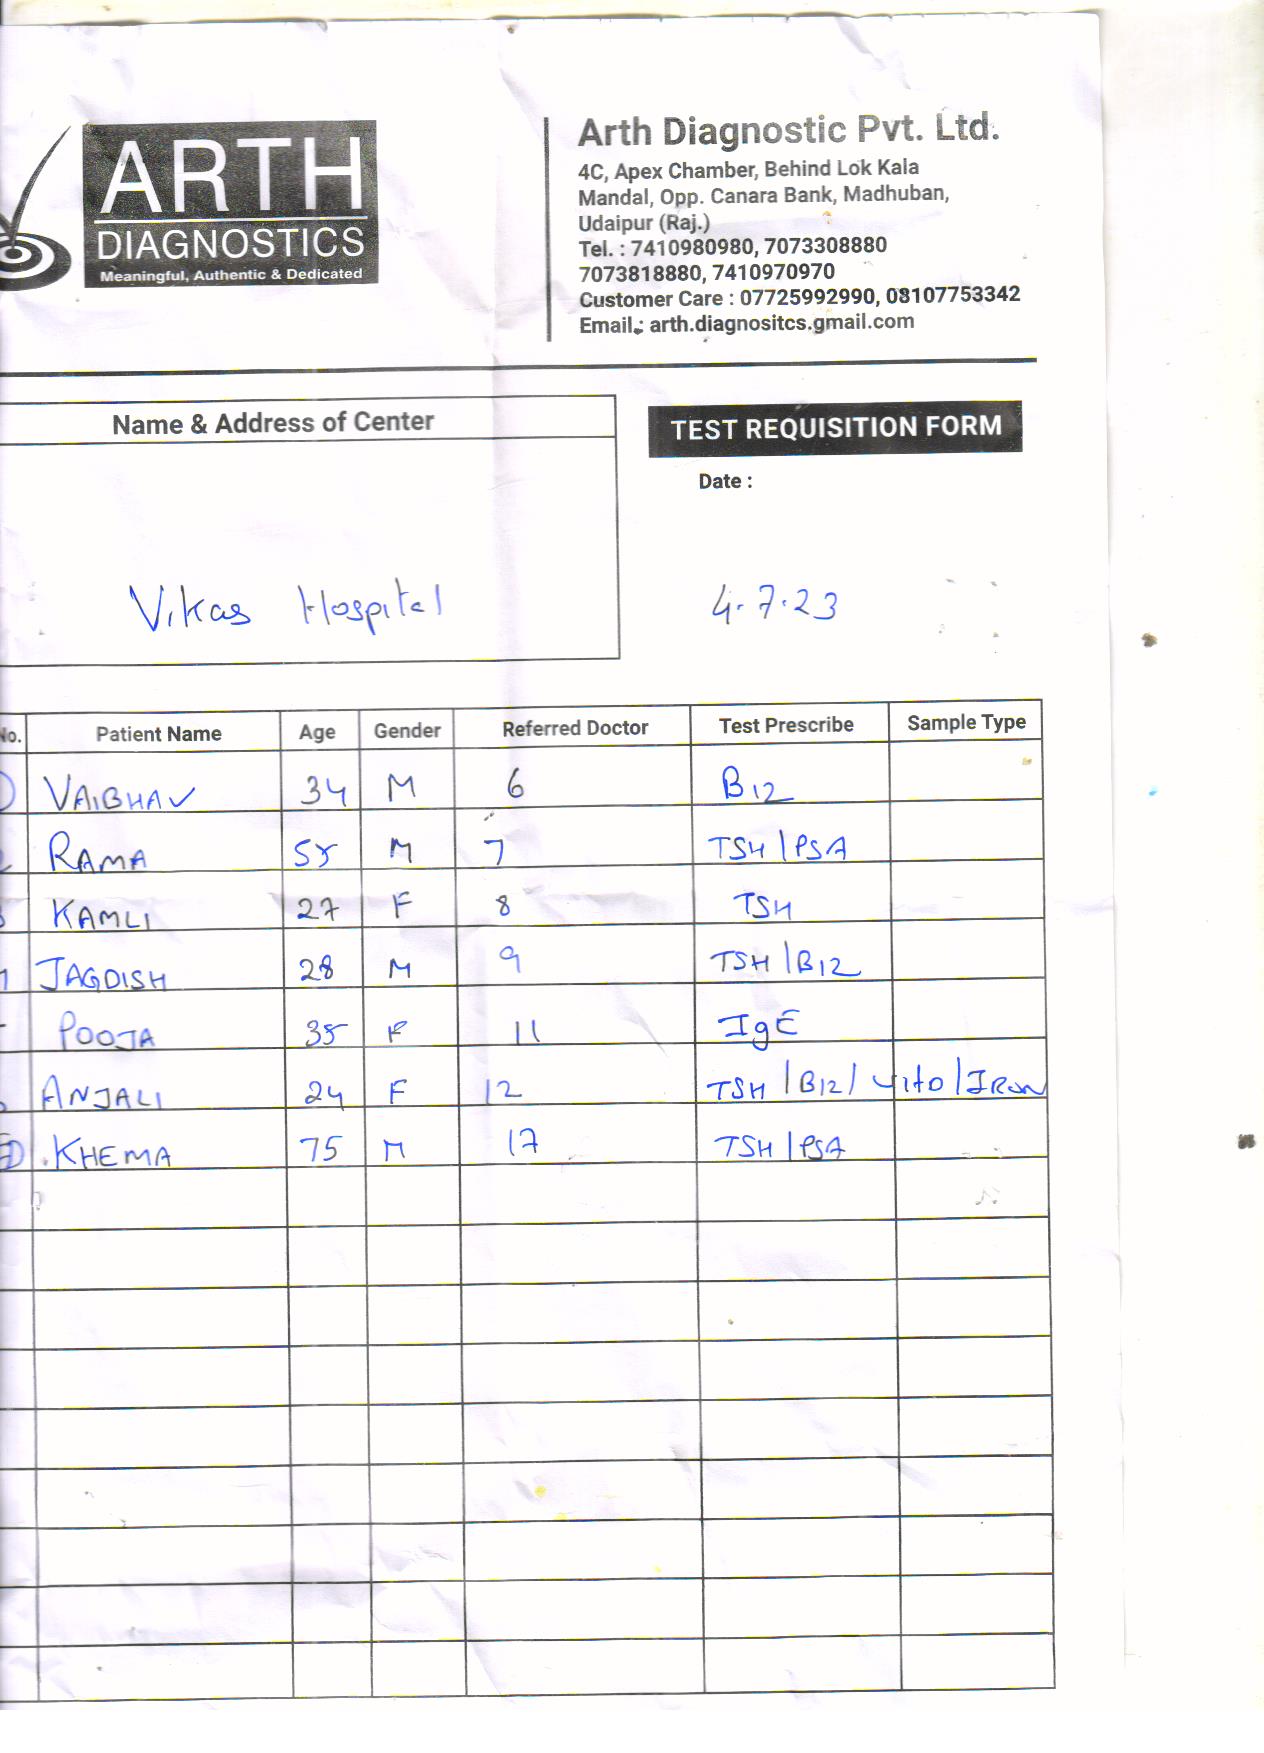 ARTH
DIAGNOSTICS
Meaningful, Authentic & Dedicated
Arth Diagnostic Pvt. Ltd.
4C, Apex Chamber, Behind Lok Kala
Mandal, Opp. Canara Bank, Madhuban,
Udaipur (Raj.)
Tel. : 7410980980, 7073308880
7073818880, 7410970970
Customer Care : 07725992990, 08107753342
Email.: arth.diagnositcs.gmail.com
Name & Address of Center
TEST REQUISITION FORM
Date :
Vikas Hospital
4.7.23
No. Patient Name Age Gender Referred Doctor Test Prescribe Sample Type
VAIBHAV 34 M 6 B12
RAMA 55 M 7 TSH/PSA
KAMLI 27 F 8 TSH
JAGDISH 28 M 9 TSH/B12
POOJA 35 F 11 IgE
ANJALI 24 F 12 TSH/B12/VitD/IRON
KHEMA 75 M 17 TSH/PSA